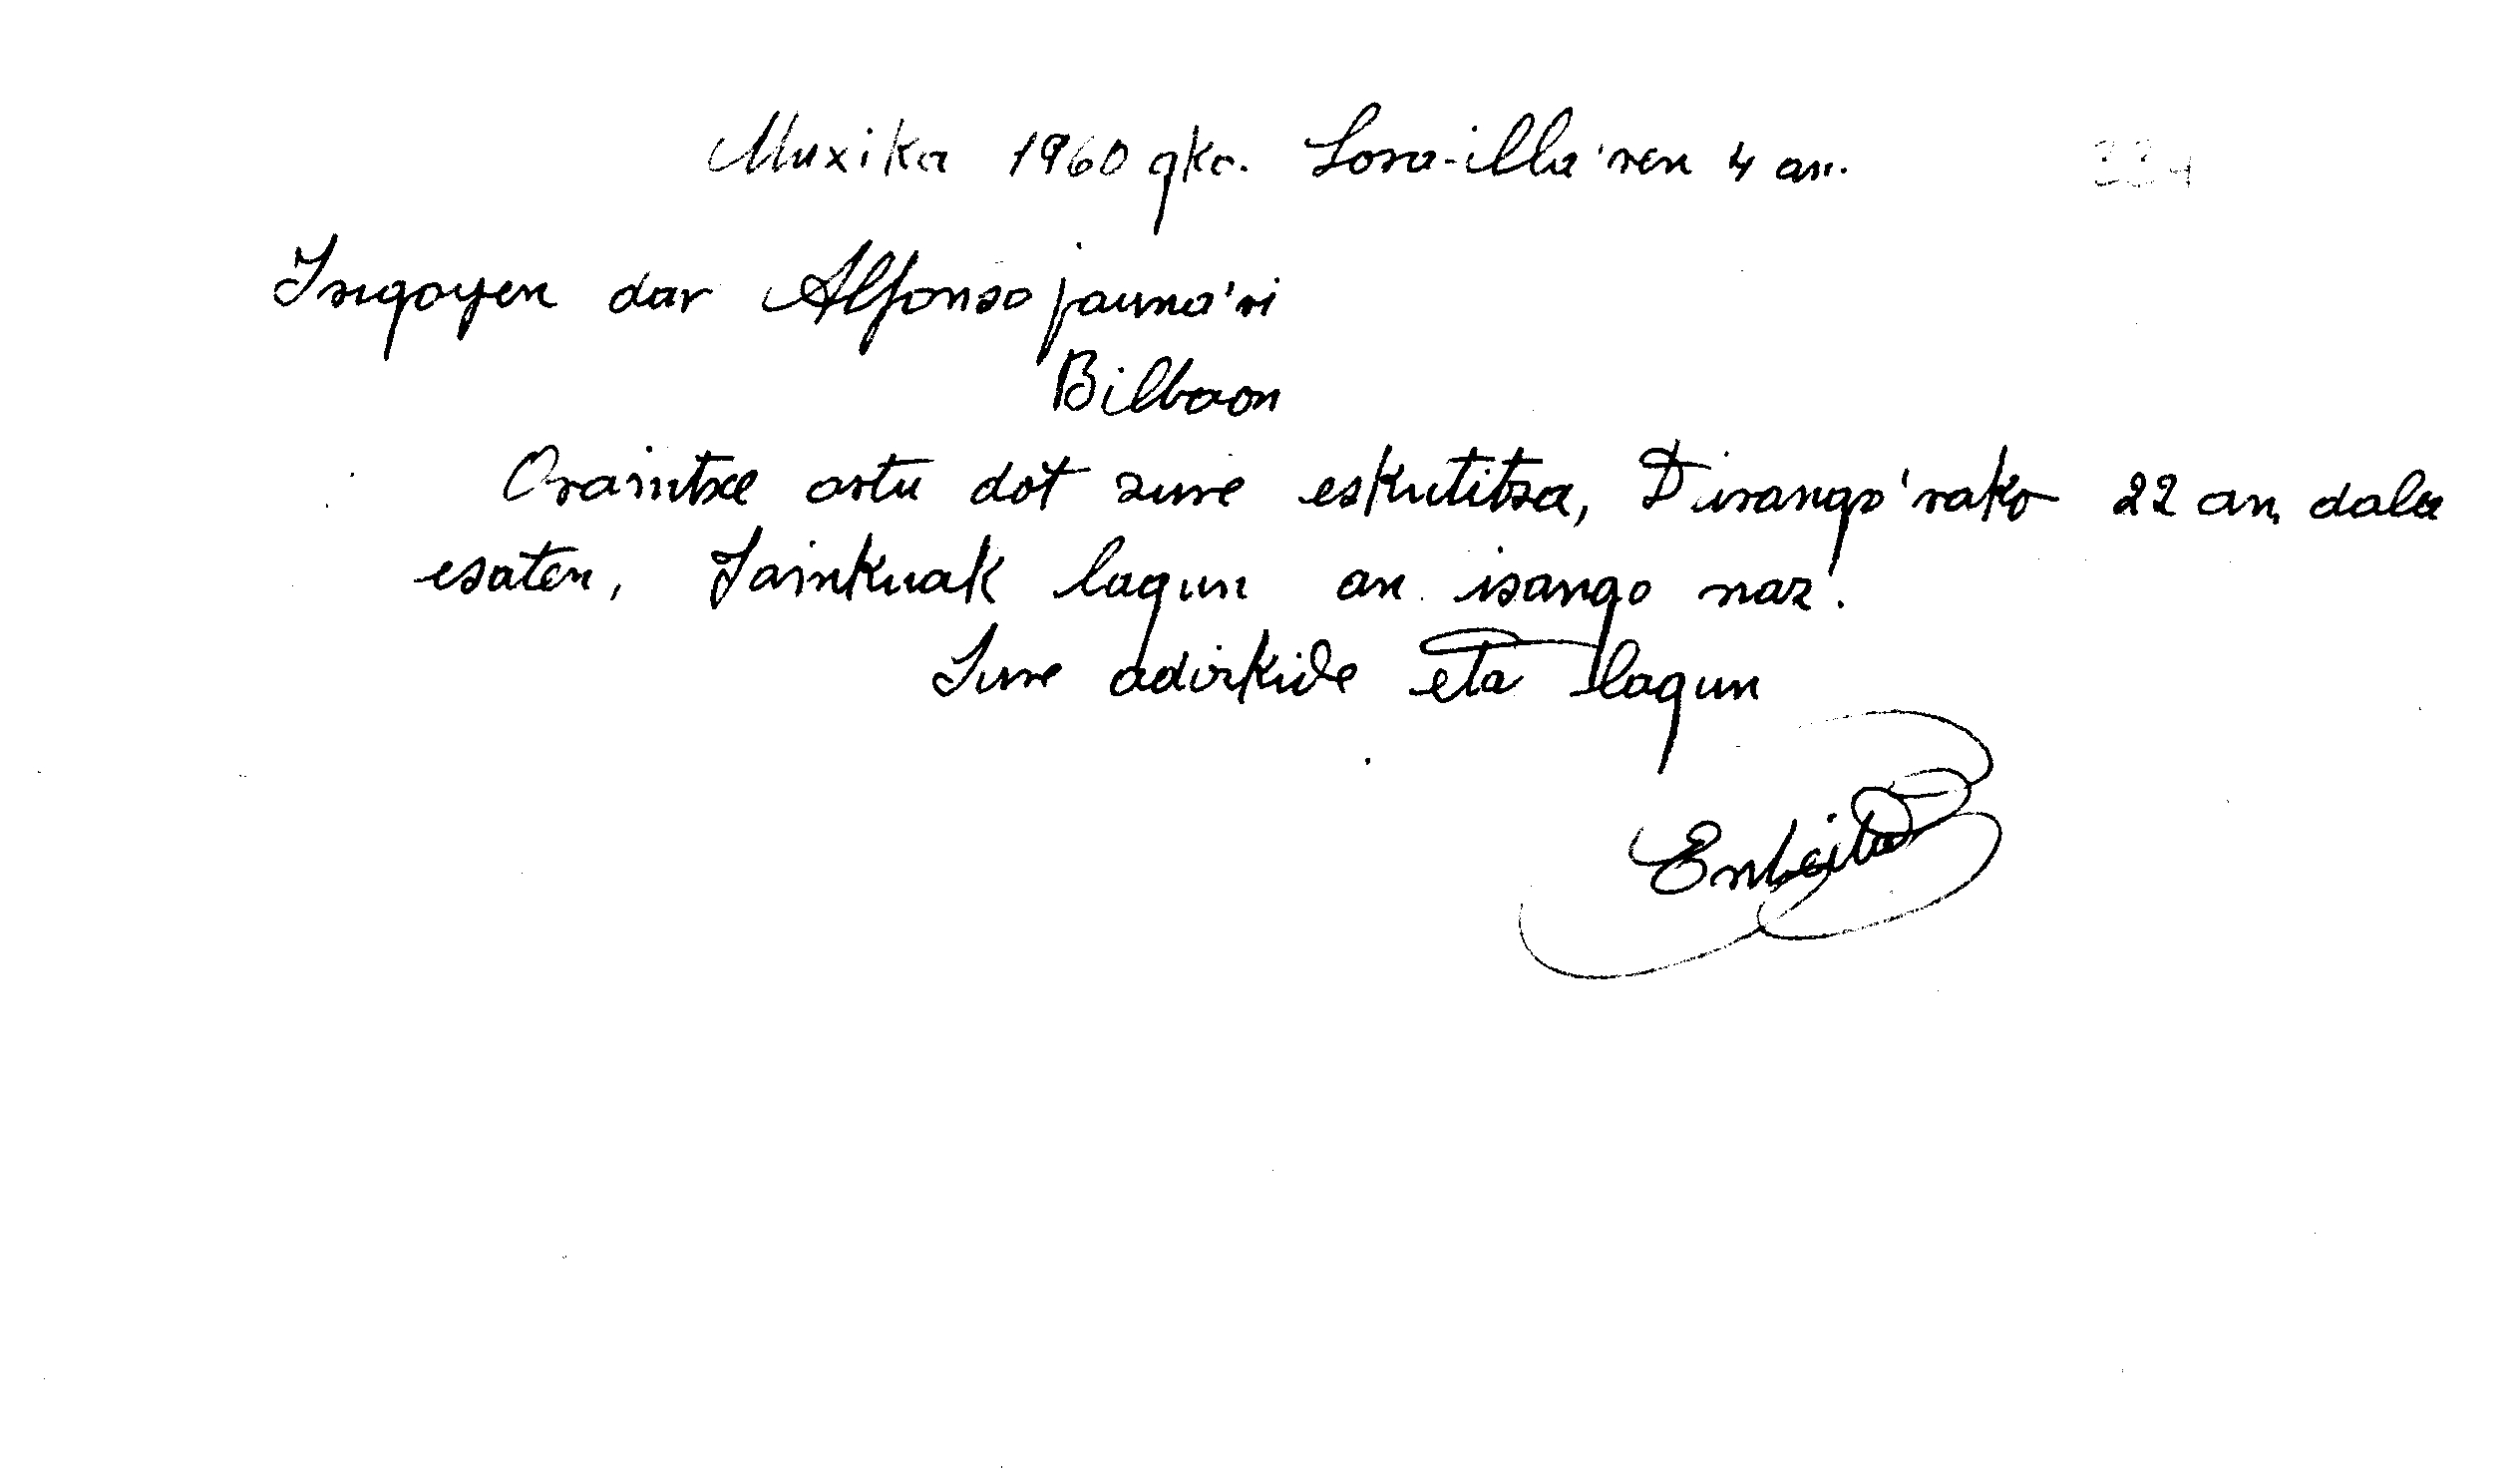 Muxika 1960 gko. Lora-illa'ren 4 an. 224
Irigoyen dar Alfonso jauna'ri
Bilbaon
Oraintxe artu dot zure eskutitza, Durango'rako 22 an, dala
esaten, Jainkuak lagun an izango naz.
Zure adizkide eta lagun
Enbeita